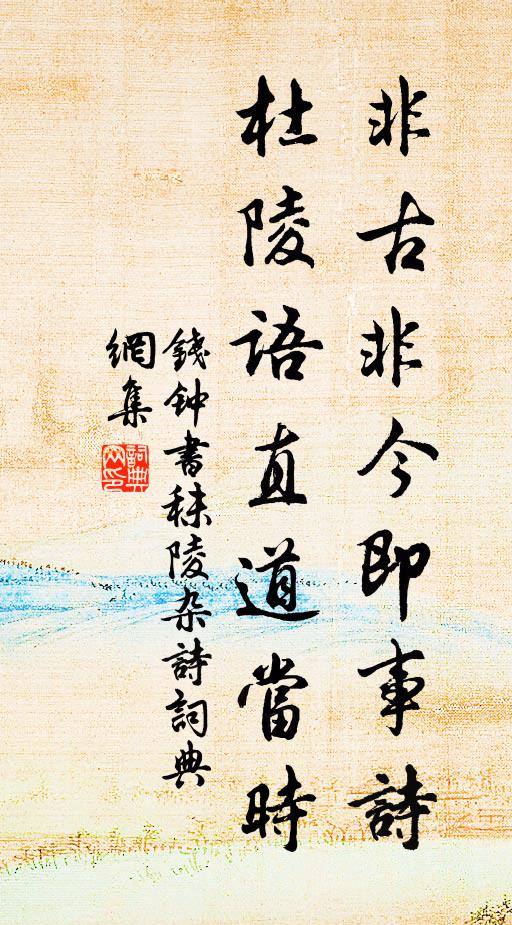 非古非今即事詩
杜陵語直道當時
錢钟書秣陵杂詩詞典
網集
詞典
网印